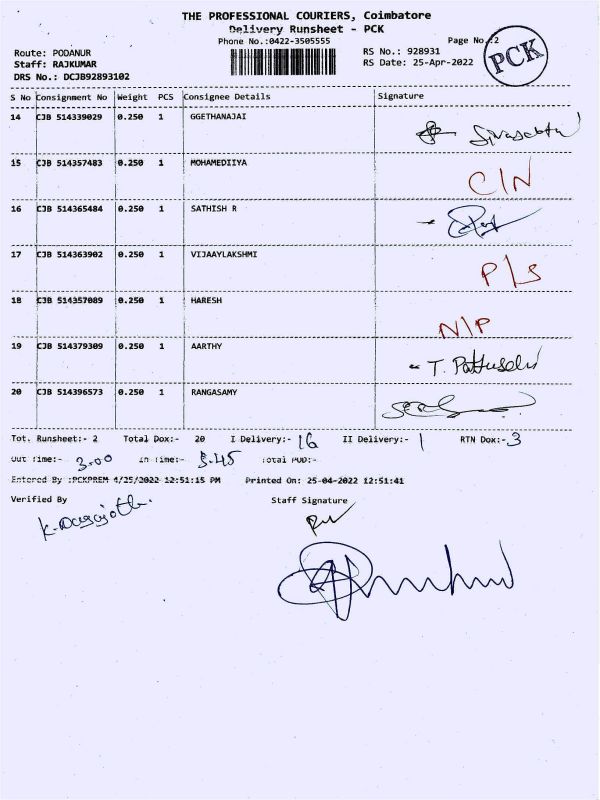 THE PROFESSIONAL COURIERS, Coimbatore
Delivery Runsheet - PCK
Phone No.:0422-3505555
Page No.:2
PCK
Route: PODANUR
RS No.: 928931
Staff: RAJKUMAR
RS Date: 25-Apr-2022
DRS No.: DCJB92893102
S No Consignment No Weight PCS Consignee Details Signature
14 CJB 514339029 0.250 1 GGETHANAJAI
15 CJB 514357483 0.250 1 MOHAMEDIIYA C/N
16 CJB 514365484 0.250 1 SATHISH R
17 CJB 514363902 0.250 1 VIJAAYLAKSHMI P/S
18 CJB 514357089 0.250 1 HARESH N/P
19 CJB 514379309 0.250 1 AARTHY T.
20 CJB 514396573 0.250 1 RANGASAMY
Tot. Runsheet:- 2 Total Dox:- 20 I Delivery:- 16 II Delivery:- 1 RTN Dox:- 3
Out Time:- 3.00 In Time:- 5.45 Total POD:-
Entered By :PCKPREM 4/25/2022 12:51:15 PM Printed On: 25-04-2022 12:51:41
Verified By Staff Signature